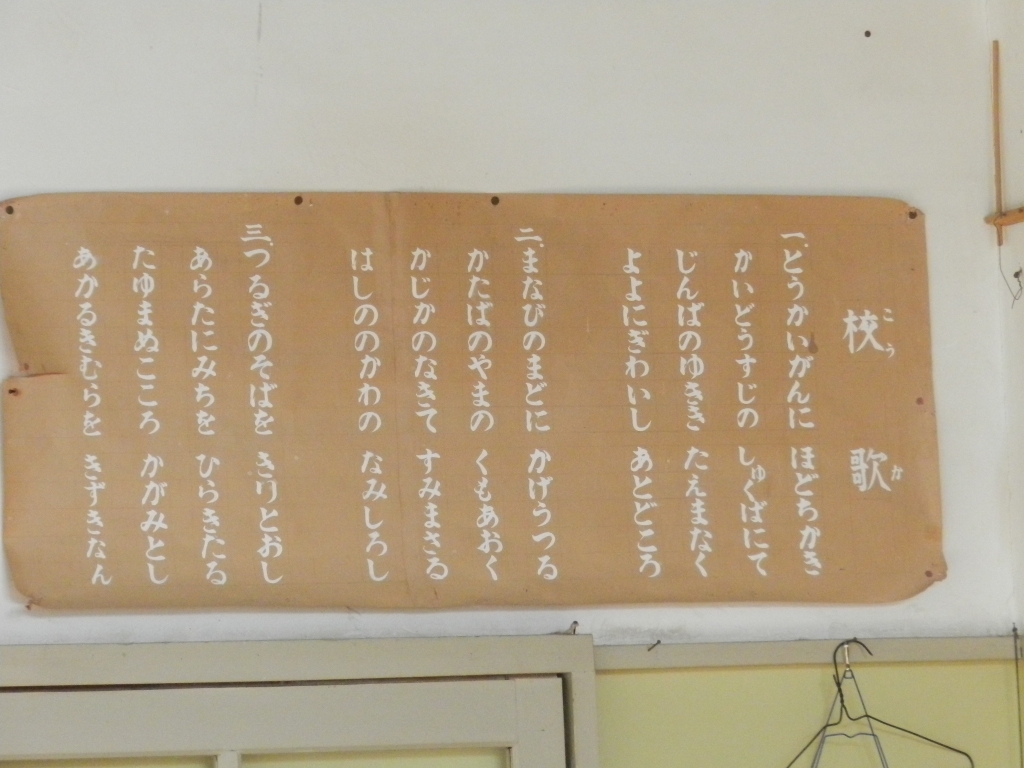 校歌
こうか
一、とうかいがんに ほどちかき
かいどうすじの しゅくばにて
じんばのゆきき たえまなく
よよにぎわいし あとどころ
二、まなびのまどに かげうつる
かたばのやまの くもあおく
かじかのなきて すみまさる
はしののかわの なみしろし
三、つるぎのそばを きりとおし
あらたにみちを ひらきたる
たゆまぬこころ かがみとし
あかるきむらを きずきなん